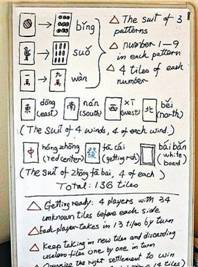 bǐng
suǒ
一 → 九 wàn
△ The suit of 3 patterns
△ number 1–9 in each pattern
△ 4 tiles of each number
東 南 西 北
dōng (east) nán (south) xī (west) běi (north)
(The suit of 4 winds, 4 of each wind)
中 hóng zhōng (red center) fā cái (getting rich) bái bǎn (white board)
(The suit of zhōng fā bái, 4 of each)
Total: 136 tiles
△ Getting ready: 4 players with 34 unknown tiles before each side
△ Each player takes in 13 tiles by turn
△ Keep taking in new tiles and discarding useless tiles one by one in turn
right settlement to win